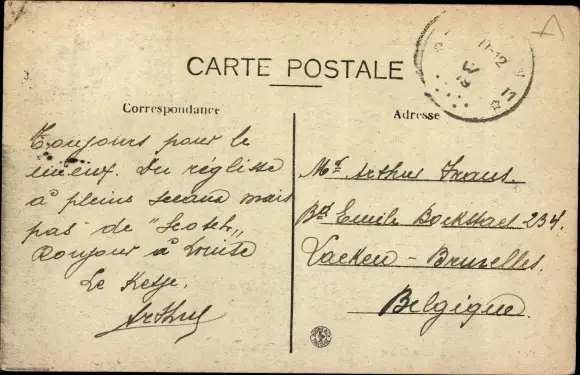 CARTE POSTALE
Correspondance
Adresse
11-12
11
Toujours pour le
mieux. Du réglisse
à pleins seaux mais
pas de "Scotch"
Bonjour à Louise
Le Ketje.
Arthur
Mr Arthur Frans
Bd Emile Bockstael 234.
Laeken - Bruxelles.
Belgique.